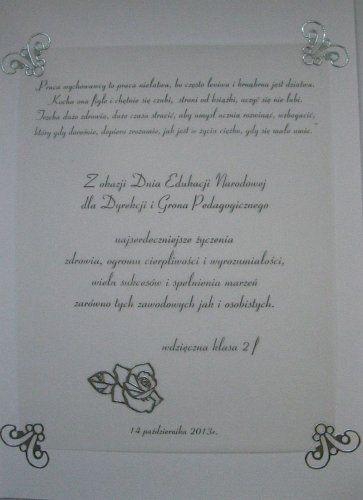 "Praca wychowawcy to praca niełatwa, bo często leniwa i krnąbrna jest dziatwa.
Kocha ona figle i chętnie się czubi, stroni od książki, uczyć się nie lubi.
Trzeba dużo zdrowia, dużo czasu stracić, aby umysł ucznia rozwinąć, wzbogacić,
który gdy dorośnie, dopiero zrozumie, jak jest w życiu ciężko, gdy się mało umie."
Z okazji Dnia Edukacji Narodowej
dla Dyrekcji i Grona Pedagogicznego
najserdeczniejsze życzenia
zdrowia, ogromu cierpliwości i wyrozumiałości,
wielu sukcesów i spełnienia marzeń
zarówno tych zawodowych jak i osobistych.
wdzięczna klasa 2 f
14 października 2013r.